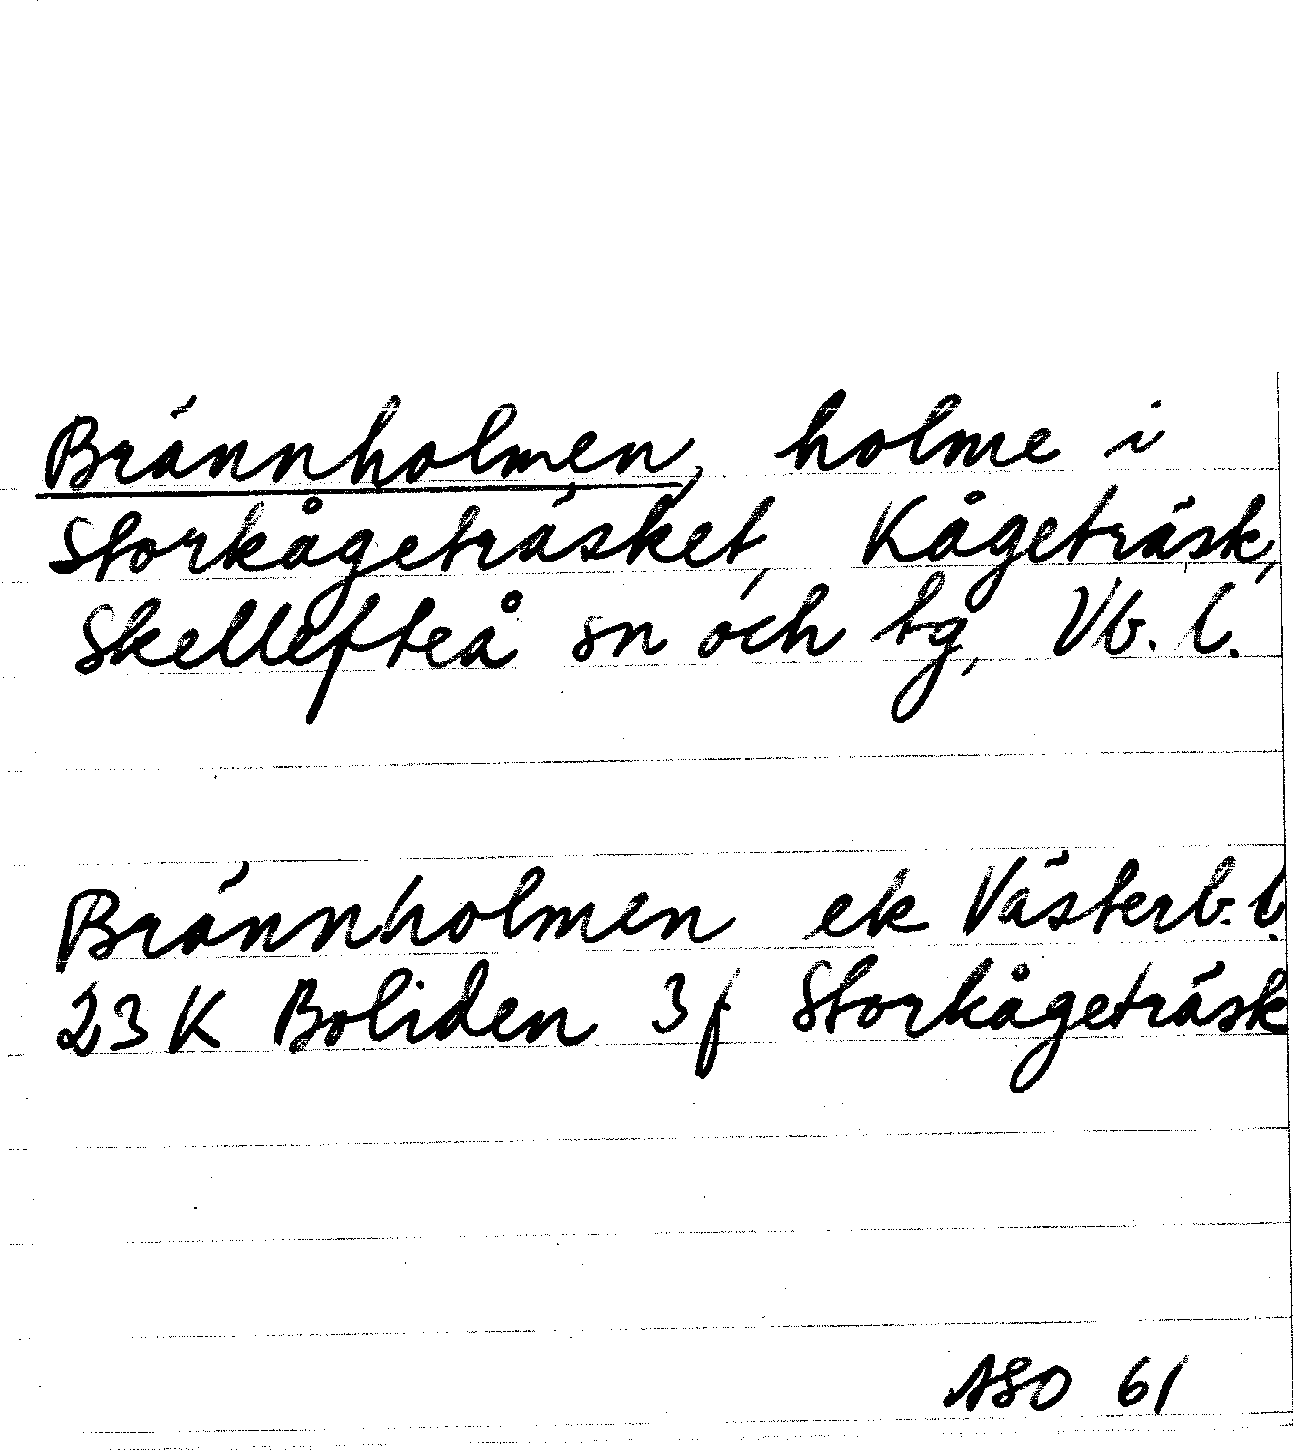 Brännholmen, holme i
Storkågeträsket, Kågeträsk,
Skellefteå sn och tg, Vb. l.
Brännholmen ek Västerb. l.
23 K Boliden 3 f Storkågeträsk
ASO 61